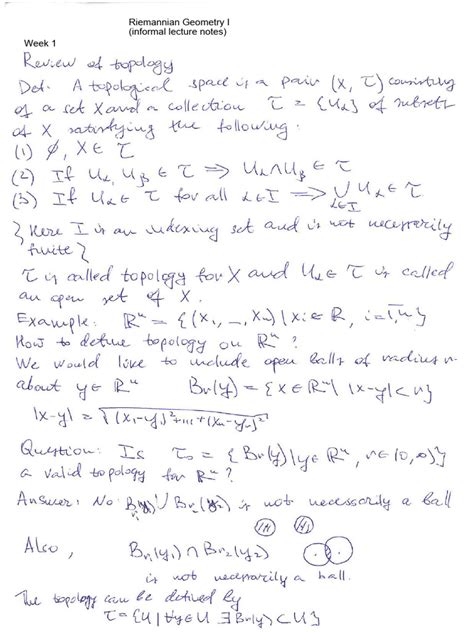 Riemannian Geometry I
(informal lecture notes)
Week 1
Review of topology
Def. A topological space is a pair (X, τ) consisting
of a set X and a collection τ = {Uα} of subsets
of X satisfying the following:
(1) ∅, X ∈ τ
(2) If Uα, Uβ ∈ τ ⇒ Uα ∩ Uβ ∈ τ
(3) If Uα ∈ τ for all α ∈ I ⇒ ∪ Uα ∈ τ
α∈I
{Here I is an indexing set and is not necessarily
finite}
τ is called topology for X and Uα ∈ τ is called
an open set of X.
Example: ℝⁿ = {(x₁, ..., xₙ) | xᵢ ∈ ℝ, i=1,n}
How to define topology on ℝⁿ?
We would like to include open balls of radius r
about y ∈ ℝⁿ Br(y) = {x ∈ ℝⁿ | |x-y| < r}
|x-y| = √(x₁-y₁)²+...+(xₙ-yₙ)²
Question: Is τ₀ = {Br(y) | y ∈ ℝⁿ, r ∈ (0, ∞)}
a valid topology for ℝⁿ?
Answer: No: Br₁(y₁) ∪ Br₂(y₂) is not necessarily a ball
Also, Br₁(y₁) ∩ Br₂(y₂)
is not necessarily a ball.
The topology can be defined by
τ = {U | ∀y ∈ U ∃ Br(y) ⊂ U}